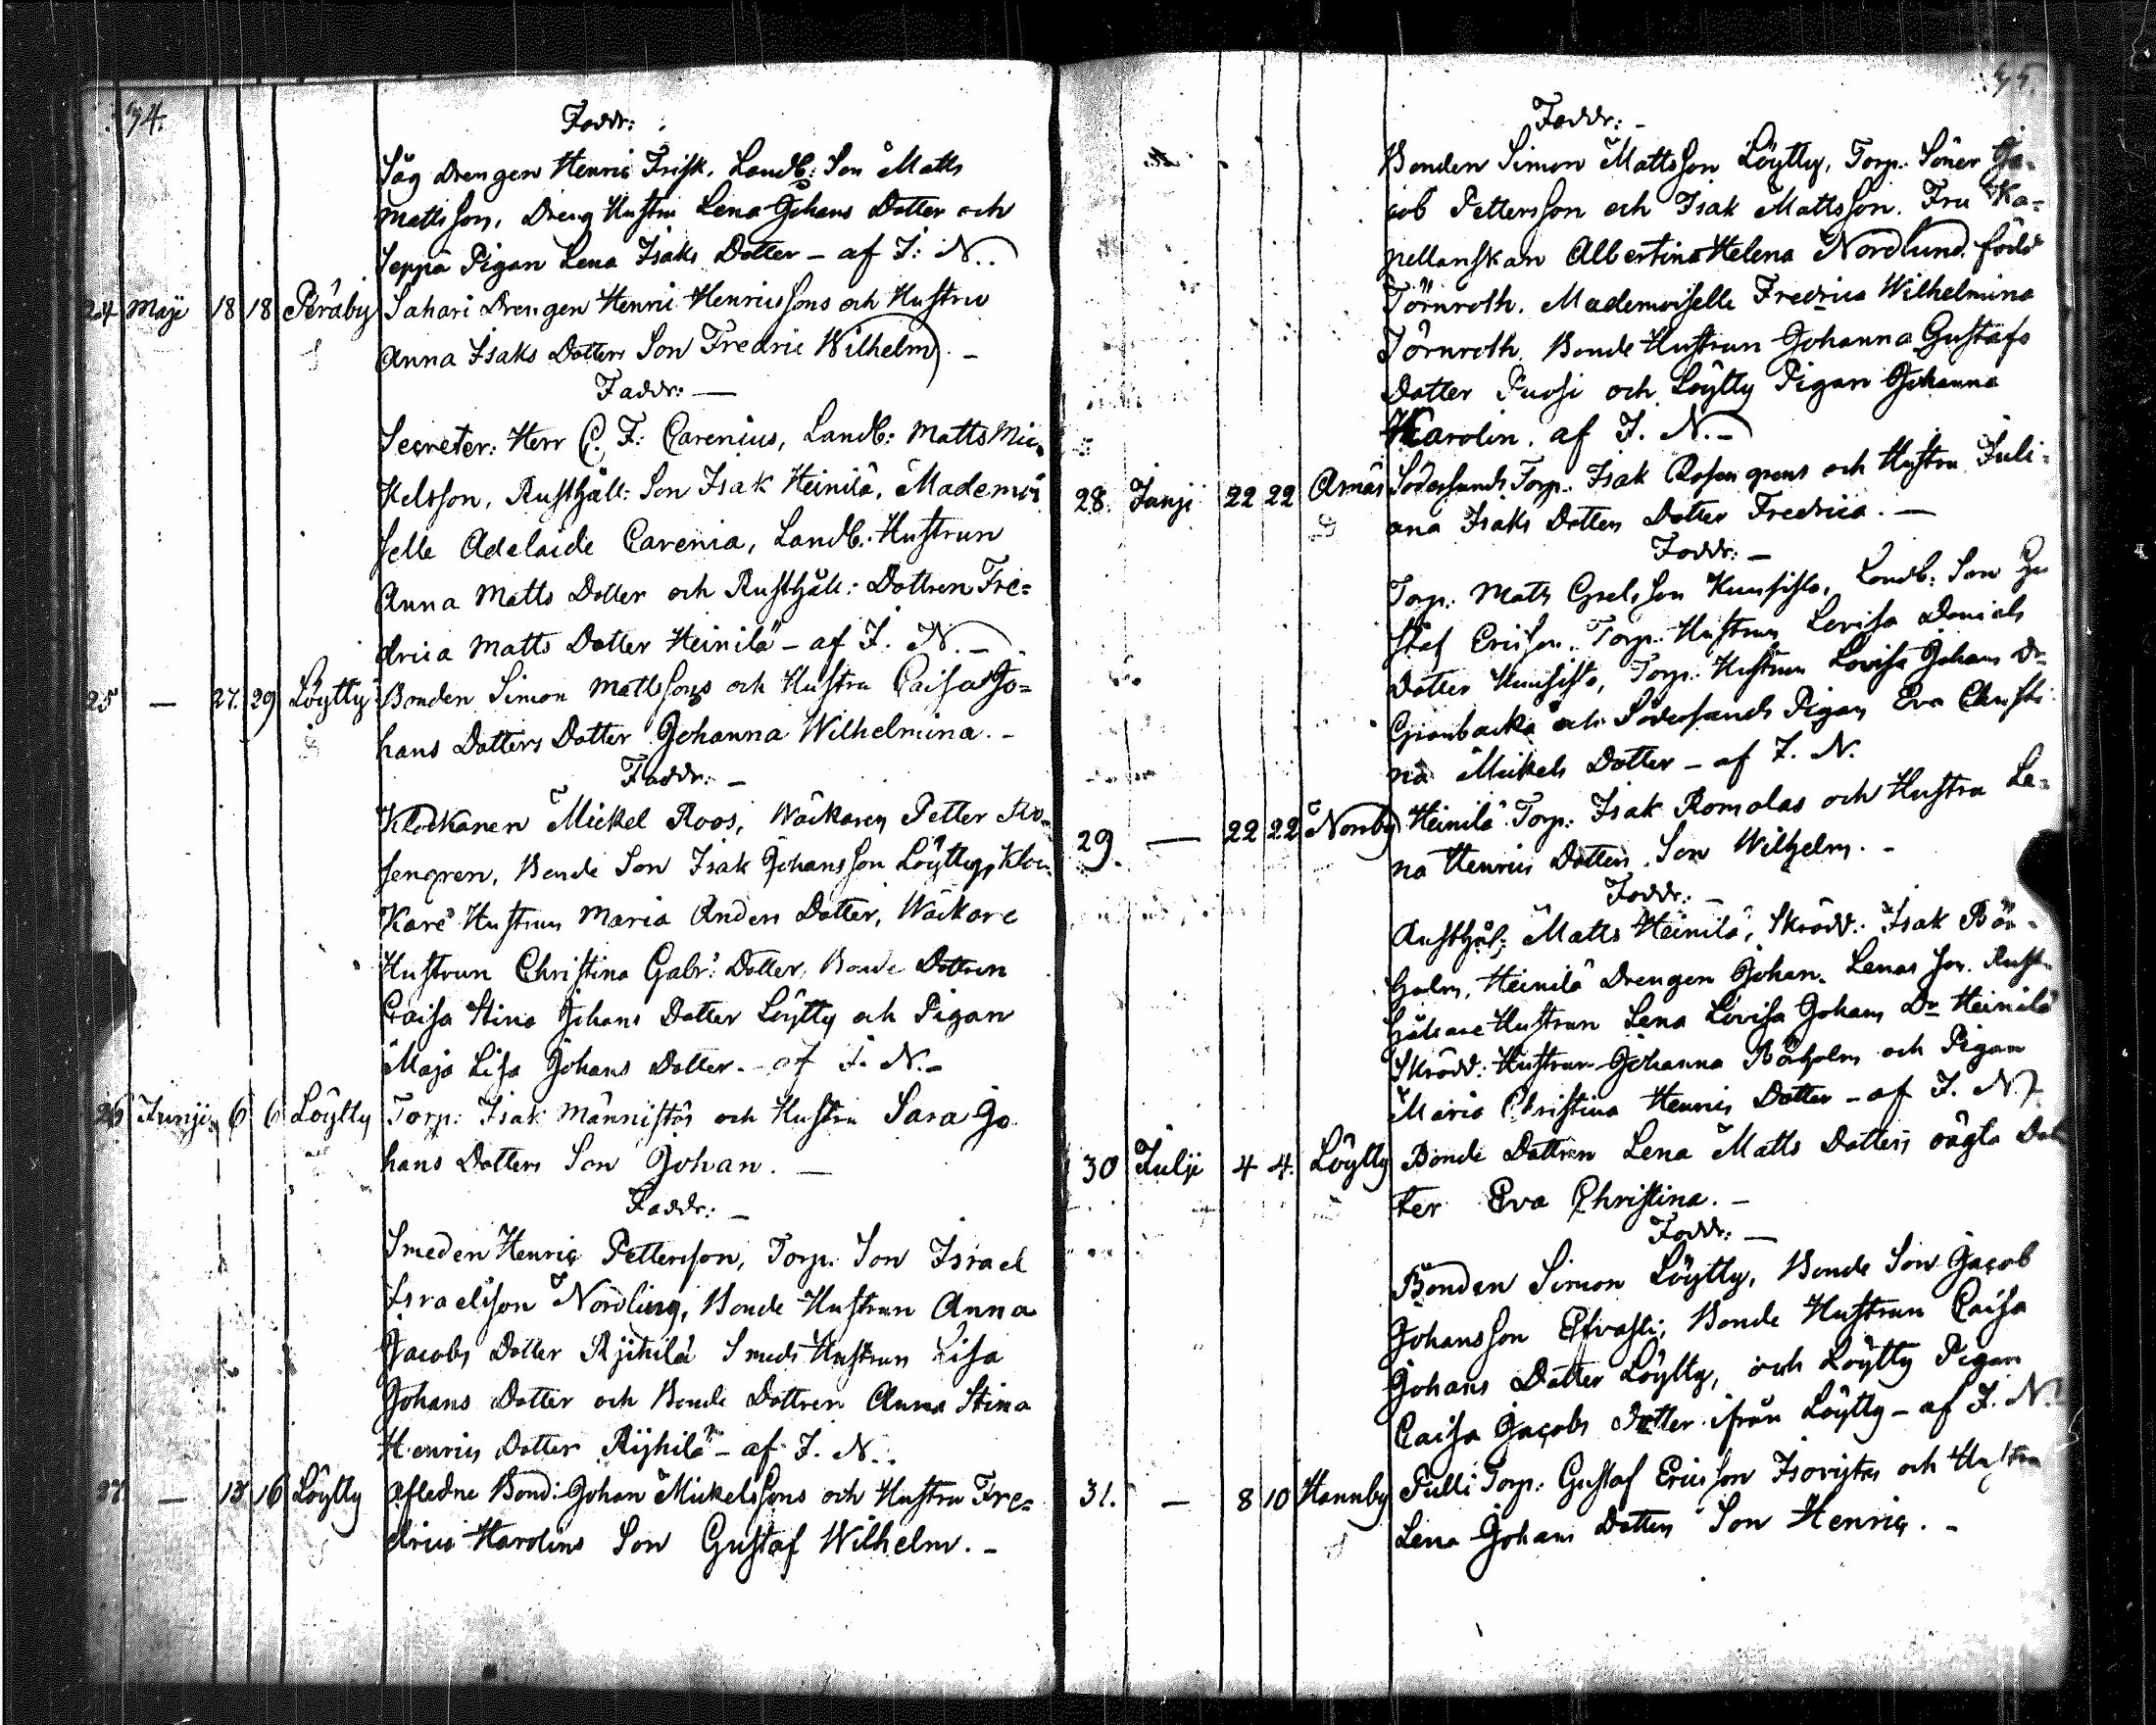 74.
Faddr:
Såg Drengen Henric Frisk, Landb: Son Matts
Mattsson, Dreng Hustru Lena Johans Dotter och
Seppä Pigan Lena Isaks Dotter - af J: N..
24 Maji 18 18 Peräby Sahari Drengen Henric Henricssons och Hustru
Anna Isaks Dotters Son Fredric Wilhelm. -
Faddr: -
Secreter: Herr C. F: Carenius, Landb: Matts Mic-
kelsson, Rusthåll: Son Isak Heinilä, Mademoi
selle Adelaide Carenia, Landb. Hustrun
Anna Matts Dotter och Rusthåll: Dottren Fre=
drica Matts Dotter Heinilä - af J. N. -
25 - 27. 29 Löytty Bonden Simon Mattssons och Hustru Caisa Jo=
hans Dotters Dotter Johanna Wilhelmina. -
Faddr: -
Klockaren Mickel Roos, Wäckaren Petter Ro-
sengren, Bonde Son Isak Johansson Löytty, Kloc-
kare Hustrun Maria Anders Dotter, Wäckare
Hustrun Christina Gabr: Dotter, Bonde Dottren
Caisa Stina Johans Dotter Löytty och Pigan
Maja Lisa Johans Dotter. - af J. N. -
26 Junji 6 6 Löytty Torp: Isak Männistös och Hustru Sara Jo
hans Dotters Son Johan. -
Faddr: -
Smeden Henric Pettersson, Torp. Son Israel
Israelsson Nordling, Bonde Hustrun Anna
Jacobs Dotter Rijhilä Smeds Hustrun Lisa
Johans Dotter och Bonde Dottren Anna Stina
Henrics Dotter Rijhilä - af J. N..
27. - 15 16 Löytty Afledne Bond: Johan Mickelssons och Hustru Fre=
drica Karolins Son Gustaf Wilhelm. -
75.
Faddr: -
Bonden Simon Mattsson Löytty, Torp: Söner Ja-
cob Pettersson och Isak Mattsson. Fru Ka=
pellanskan Albertina Helena Nordlund född
Törnroth. Mademoiselle Fredrica Wilhelmina
Törnroth. Bonde Hustrun Johanna Gustafs
Dotter Puosi och Löytty Pigan Johanna
Karolin. af J. N. -
28. Junji 22 22 Arnäs Södersunds Torp: Isak Rosengrens och Hustru Juli-
ana Isaks Dotters Dotter Fredrica. -
Faddr: -
Torp: Matts Grelsson Kuusisto, Landb: Son Gu
staf Ericsson. Torp: Hustrun Lovisa Daniels
Dotter Kuusisto, Torp: Hustrun Lovisa Johans Dr
Granbacka och Södersunds Pigan Eva Christi
na Mickels Dotter - af J. N.
29. - 22 22 Norrby Heinilä Torp: Isak Romolas och Hustru Le-
na Henrics Dotters Son Wilhelm. -
Faddr: -
Rusthål: Matts Heinilä, Skrädd: Isak Bär-
holm, Heinilä Drengen Johan Lenas son. Rust-
hållare Hustrun Lena Lovisa Johans Dr Heinilä
Skrädd: Hustrun Johanna Bärholm och Pigan
Maria Christina Henrics Dotter - af J. N.
30 Julji 4 4. Löytty Bonde Dottren Lena Matts Dotters oägta Dot
ter Eva Christina. -
Faddr: -
Bonden Simon Löytty, Bonde Son Jacob
Johansson Efvasti, Bonde Hustrun Caisa
Johans Dotter Löytty, och Löytty Pigan
Caisa Jacobs Dotter ifrån Löytty - af J. N.
31. - 8 10 Hannby Pulli Torp: Gustaf Ericsson Isovijtas och Hustru
Lena Johans Dotters Son Henric. -